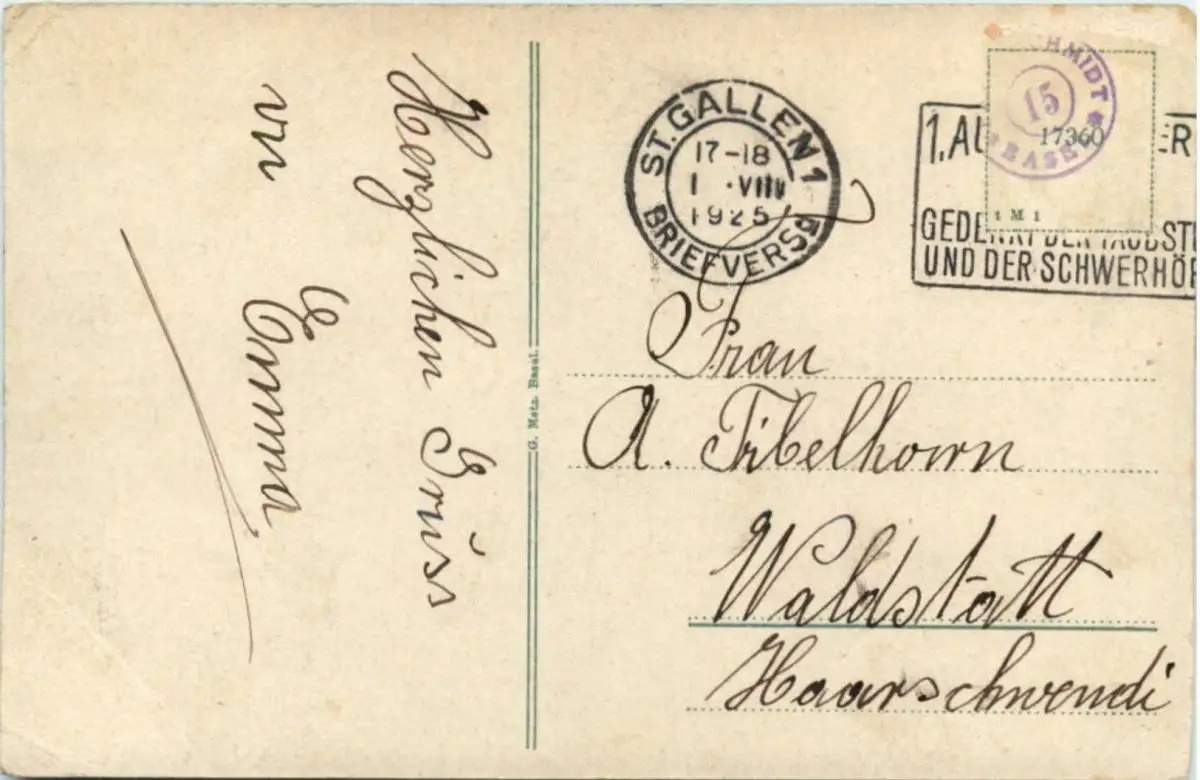 Herzlichen Gruss
von
Emma
G. Metz. Basel.
ST. GALLEN 1
17-18
1 · VIII
1925
BRIEFVERSD
1. AU
ER
GEDENKT DER TAUBST
UND DER SCHWERHÖR
HMIDT
15
BASEL
17360
1 M 1
Frau
A. Tribelhorn
Waldstatt
Haarschwendi